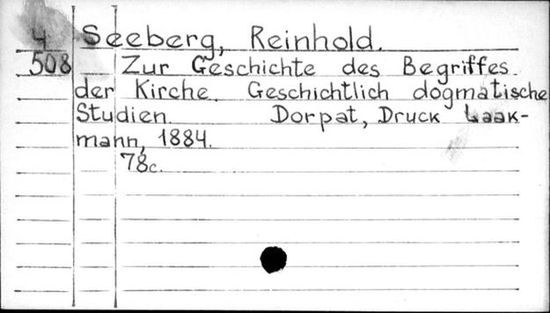 4 Seeberg, Reinhold.
508 Zur Geschichte des Begriffes
der Kirche. Geschichtlich dogmatische
Studien. Dorpat, Druck Laak-
mann, 1884.
78c.